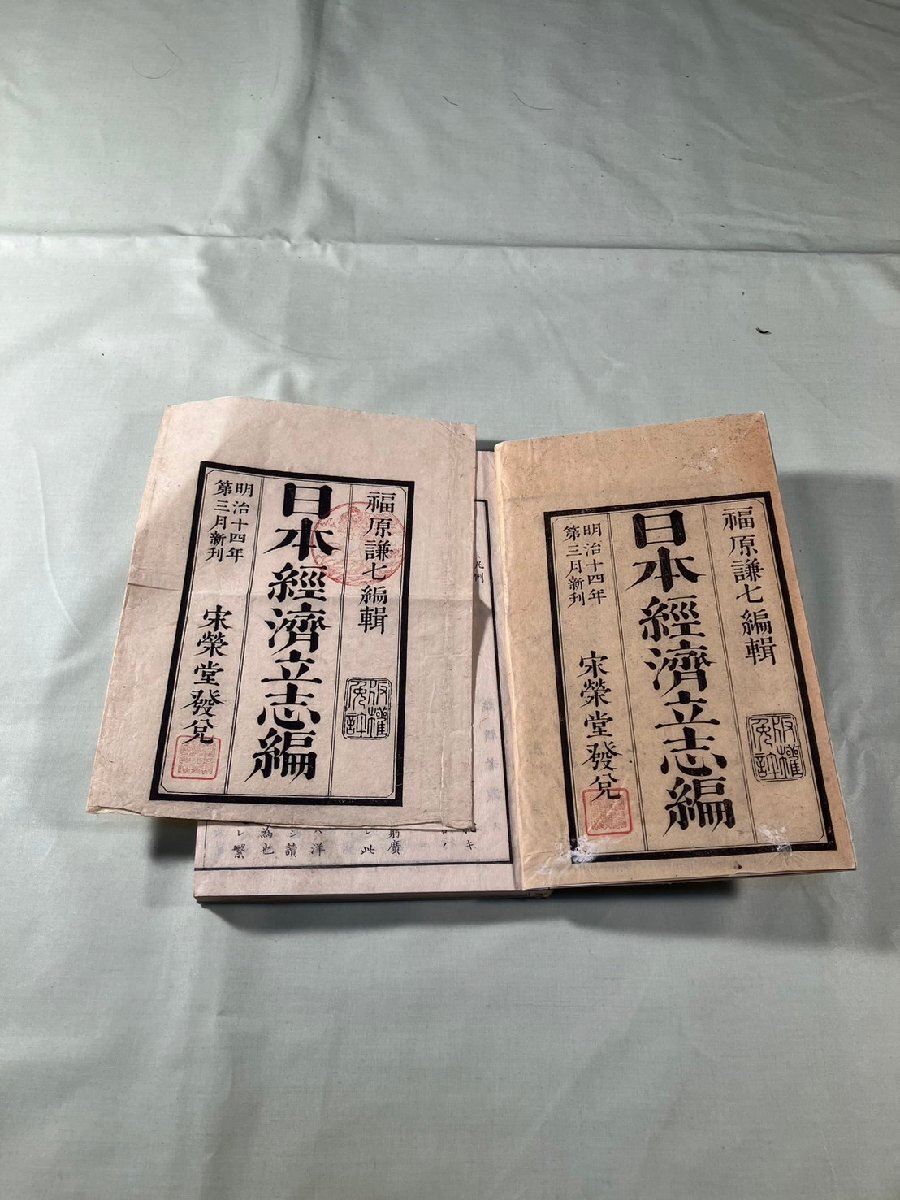 福原謙七編輯
版權免許
日本經濟立志編
明治十四年
第三月新刊
宋榮堂發兌
福原謙七編輯
版權免許
日本經濟立志編
明治十四年
第三月新刊
宋榮堂發兌